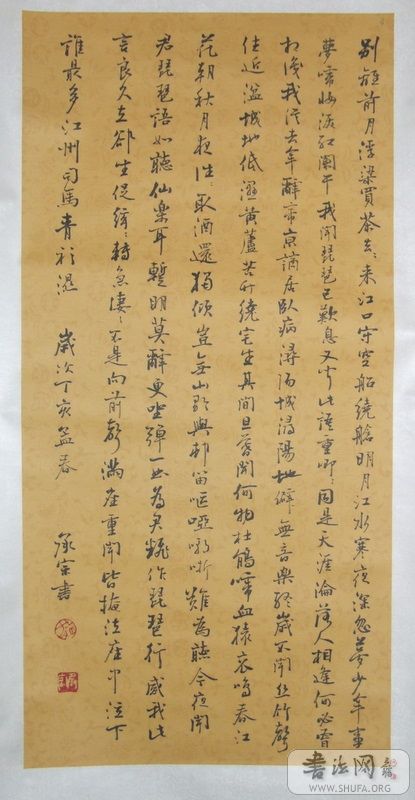 别離前月浮梁買茶去〻来江口守空船繞艙明月江水寒夜深忽夢少年事
夢啼妝淚紅闌干我聞琵琶已歎息又聞此語重唧〻同是天涯淪落人相逢何必曾
相識我從去年辭帝京謫居卧病潯陽城潯陽地僻無音樂終歲不聞絲竹聲
住近湓城地低濕黃蘆苦竹繞宅生其間旦暮聞何物杜鵑啼血猿哀鳴春江
花朝秋月夜往〻取酒還獨傾豈無山歌與邨笛嘔啞嘲哳難為聽今夜聞
君琵琶語如聽仙樂耳暫明莫辭更坐彈一曲為君翻作琵琶行感我此
言良久立卻坐促絃〻轉急淒〻不是向前聲滿座重聞皆掩泣座中泣下
誰最多江州司馬青衫濕 歲次丁亥孟春 承宗書
书法网
WWW.SHUFA.ORG